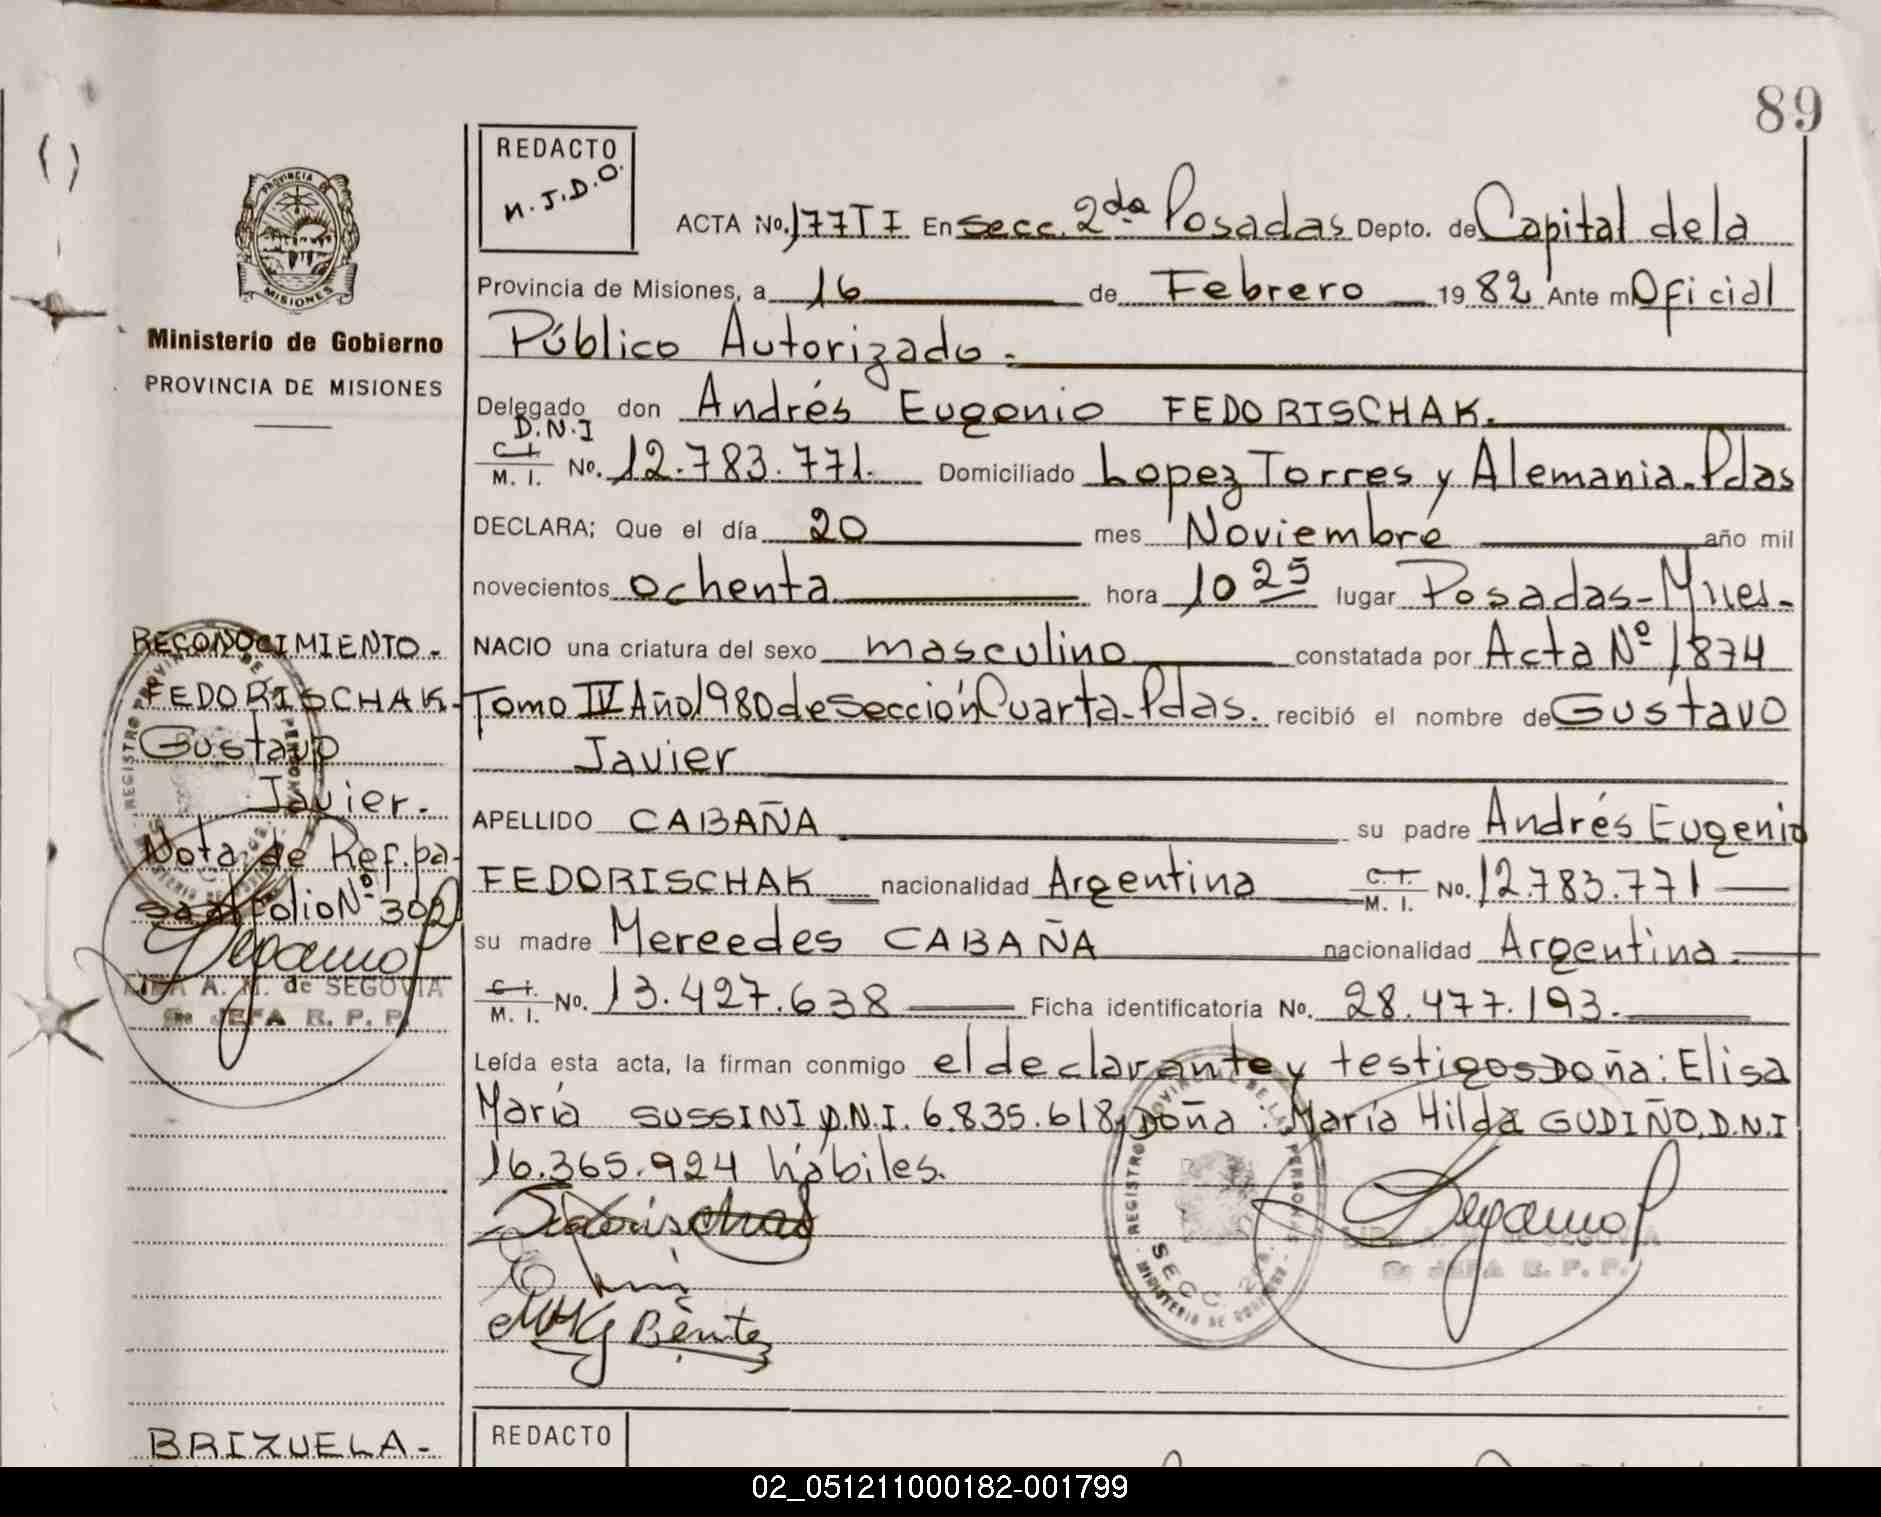 89
REDACTO
M.J.D.O.
ACTA No. 177 T I En Secc. 2da Posadas Depto. de Capital de la
Provincia de Misiones, a 16 de Febrero 1982 Ante m Oficial
Público Autorizado.
Delegado don Andrés Eugenio FEDORISCHAK.
D.N.I
C. I.
M. I. No. 12.783.771. Domiciliado Lopez Torres y Alemania. Pdas
DECLARA; Que el día 20 mes Noviembre año mil
novecientos ochenta hora 10 25 lugar Posadas - Mnes.
NACIO una criatura del sexo masculino constatada por Acta Nº 1874
Tomo IV Año 1980 de Sección Cuarta - Pdas. recibió el nombre de Gustavo
Javier
APELLIDO CABAÑA su padre Andrés Eugenio
FEDORISCHAK nacionalidad Argentina C. I. M. I. No. 12.783.771
su madre Mereedes CABAÑA nacionalidad Argentina.
C. I. M. I. No. 13.427.638 Ficha identificatoria No. 28.477.193.
Leída esta acta, la firman conmigo el declarante y testigos Doña: Elisa
María SUSSINI D.N.I. 6.835.618, Doña: María Hilda GUDIÑO. D.N.I
16.365.924 hábiles.
MHG Benitez
REGISTRO PROVINCIAL DE LAS PERSONAS
SECC. 2da.
MINISTERIO DE GOBIERNO
A. M. de SEGOVIA
JEFA R. P. P.
PROVINCIA DE
MISIONES
Ministerio de Gobierno
PROVINCIA DE MISIONES
RECONOCIMIENTO.
FEDORISCHAK-
Gustavo
Javier.
Nota de Ref. pa-
sa al folio Nº 302
A. M. de SEGOVIA
JEFA R. P. P.
BRIZUELA-
REDACTO
02_051211000182-001799